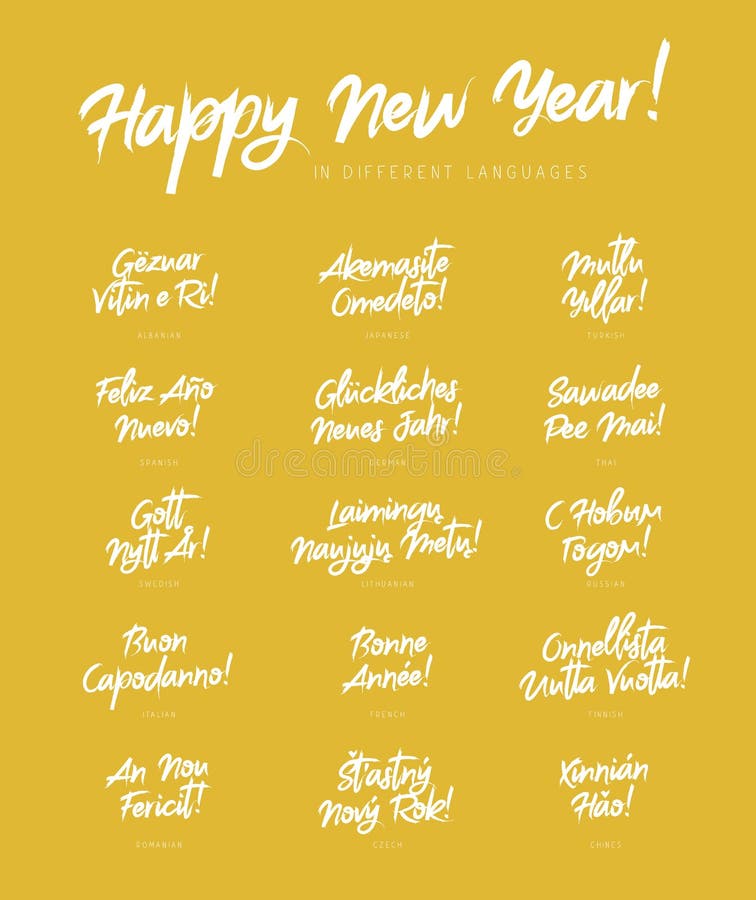 Happy New Year!
IN DIFFERENT LANGUAGES
Gëzuar
Vitin e Ri!
ALBANIAN
Akemasite
Omedeto!
JAPANESE
Mutlu
Yıllar!
TURKISH
Feliz Año
Nuevo!
SPANISH
Glückliches
Neues Jahr!
GERMAN
Sawadee
Pee Mai!
THAI
Gott
Nytt År!
SWEDISH
Laimingų
Naujųjų Metų!
LITHUANIAN
С Новым
Годом!
RUSSIAN
Buon
Capodanno!
ITALIAN
Bonne
Année!
FRENCH
Onnellista
Uutta Vuotta!
FINNISH
An Nou
Fericit!
ROMANIAN
Šťastný
Nový Rok!
CZECH
Xīnnián
Hǎo!
CHINES
dreamstime